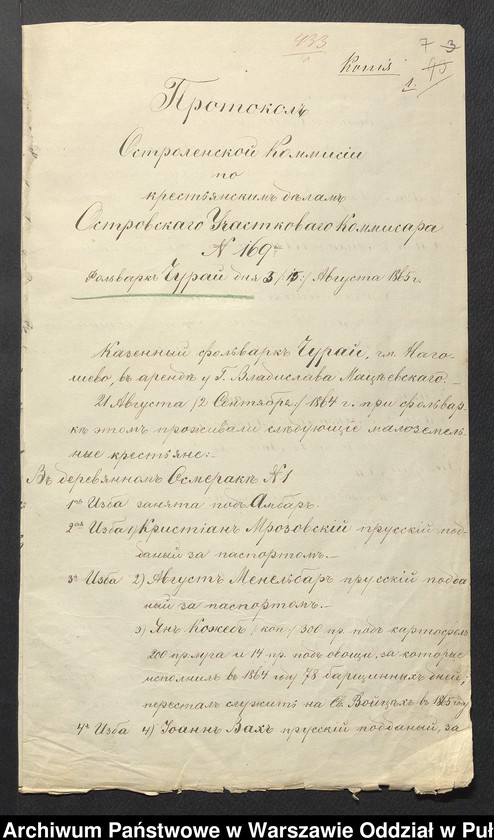 433
7 3
Копія
1.
Протоколъ
Остроленской Коммисіи
по
крестьянскимъ дѣламъ
Островскаго Участковаго Коммисара
N 169
Фольваркъ Чурай дня 3/15/ Августа 1865 г.
Казенный фольваркъ Чурай, гм. Наго-
шево, въ арендѣ у Г. Владислава Мацѣевскаго.
21 Августа /2 Сентября/ 1864 г. при фольвар-
кѣ этомъ проживали слѣдующіе малоземель-
ные крестьяне:
Въ деревянномъ Осмеракѣ N 1
1ая Изба занята подъ Амбаръ.
2ая Изба 1) Кристіанъ Мрозовскій прусскій под-
даный за паспортомъ.
3я Изба 2) Августъ Менельбаръ прусскій подда
ный за паспортомъ.
3) Янъ Кожебъ /коп/ 300 пр. подъ картофель
200 пр. луга и 14 пр. подъ овощи, за которые
исполнилъ въ 1864 году 78 барщинныхъ дней;
пересталъ служить на Св. Войцѣхъ въ 1865 году
4я Изба 4) Іоаннъ Вахъ прусскій подданый, за
Archiwum Państwowe w Warszawie Oddział w Puł